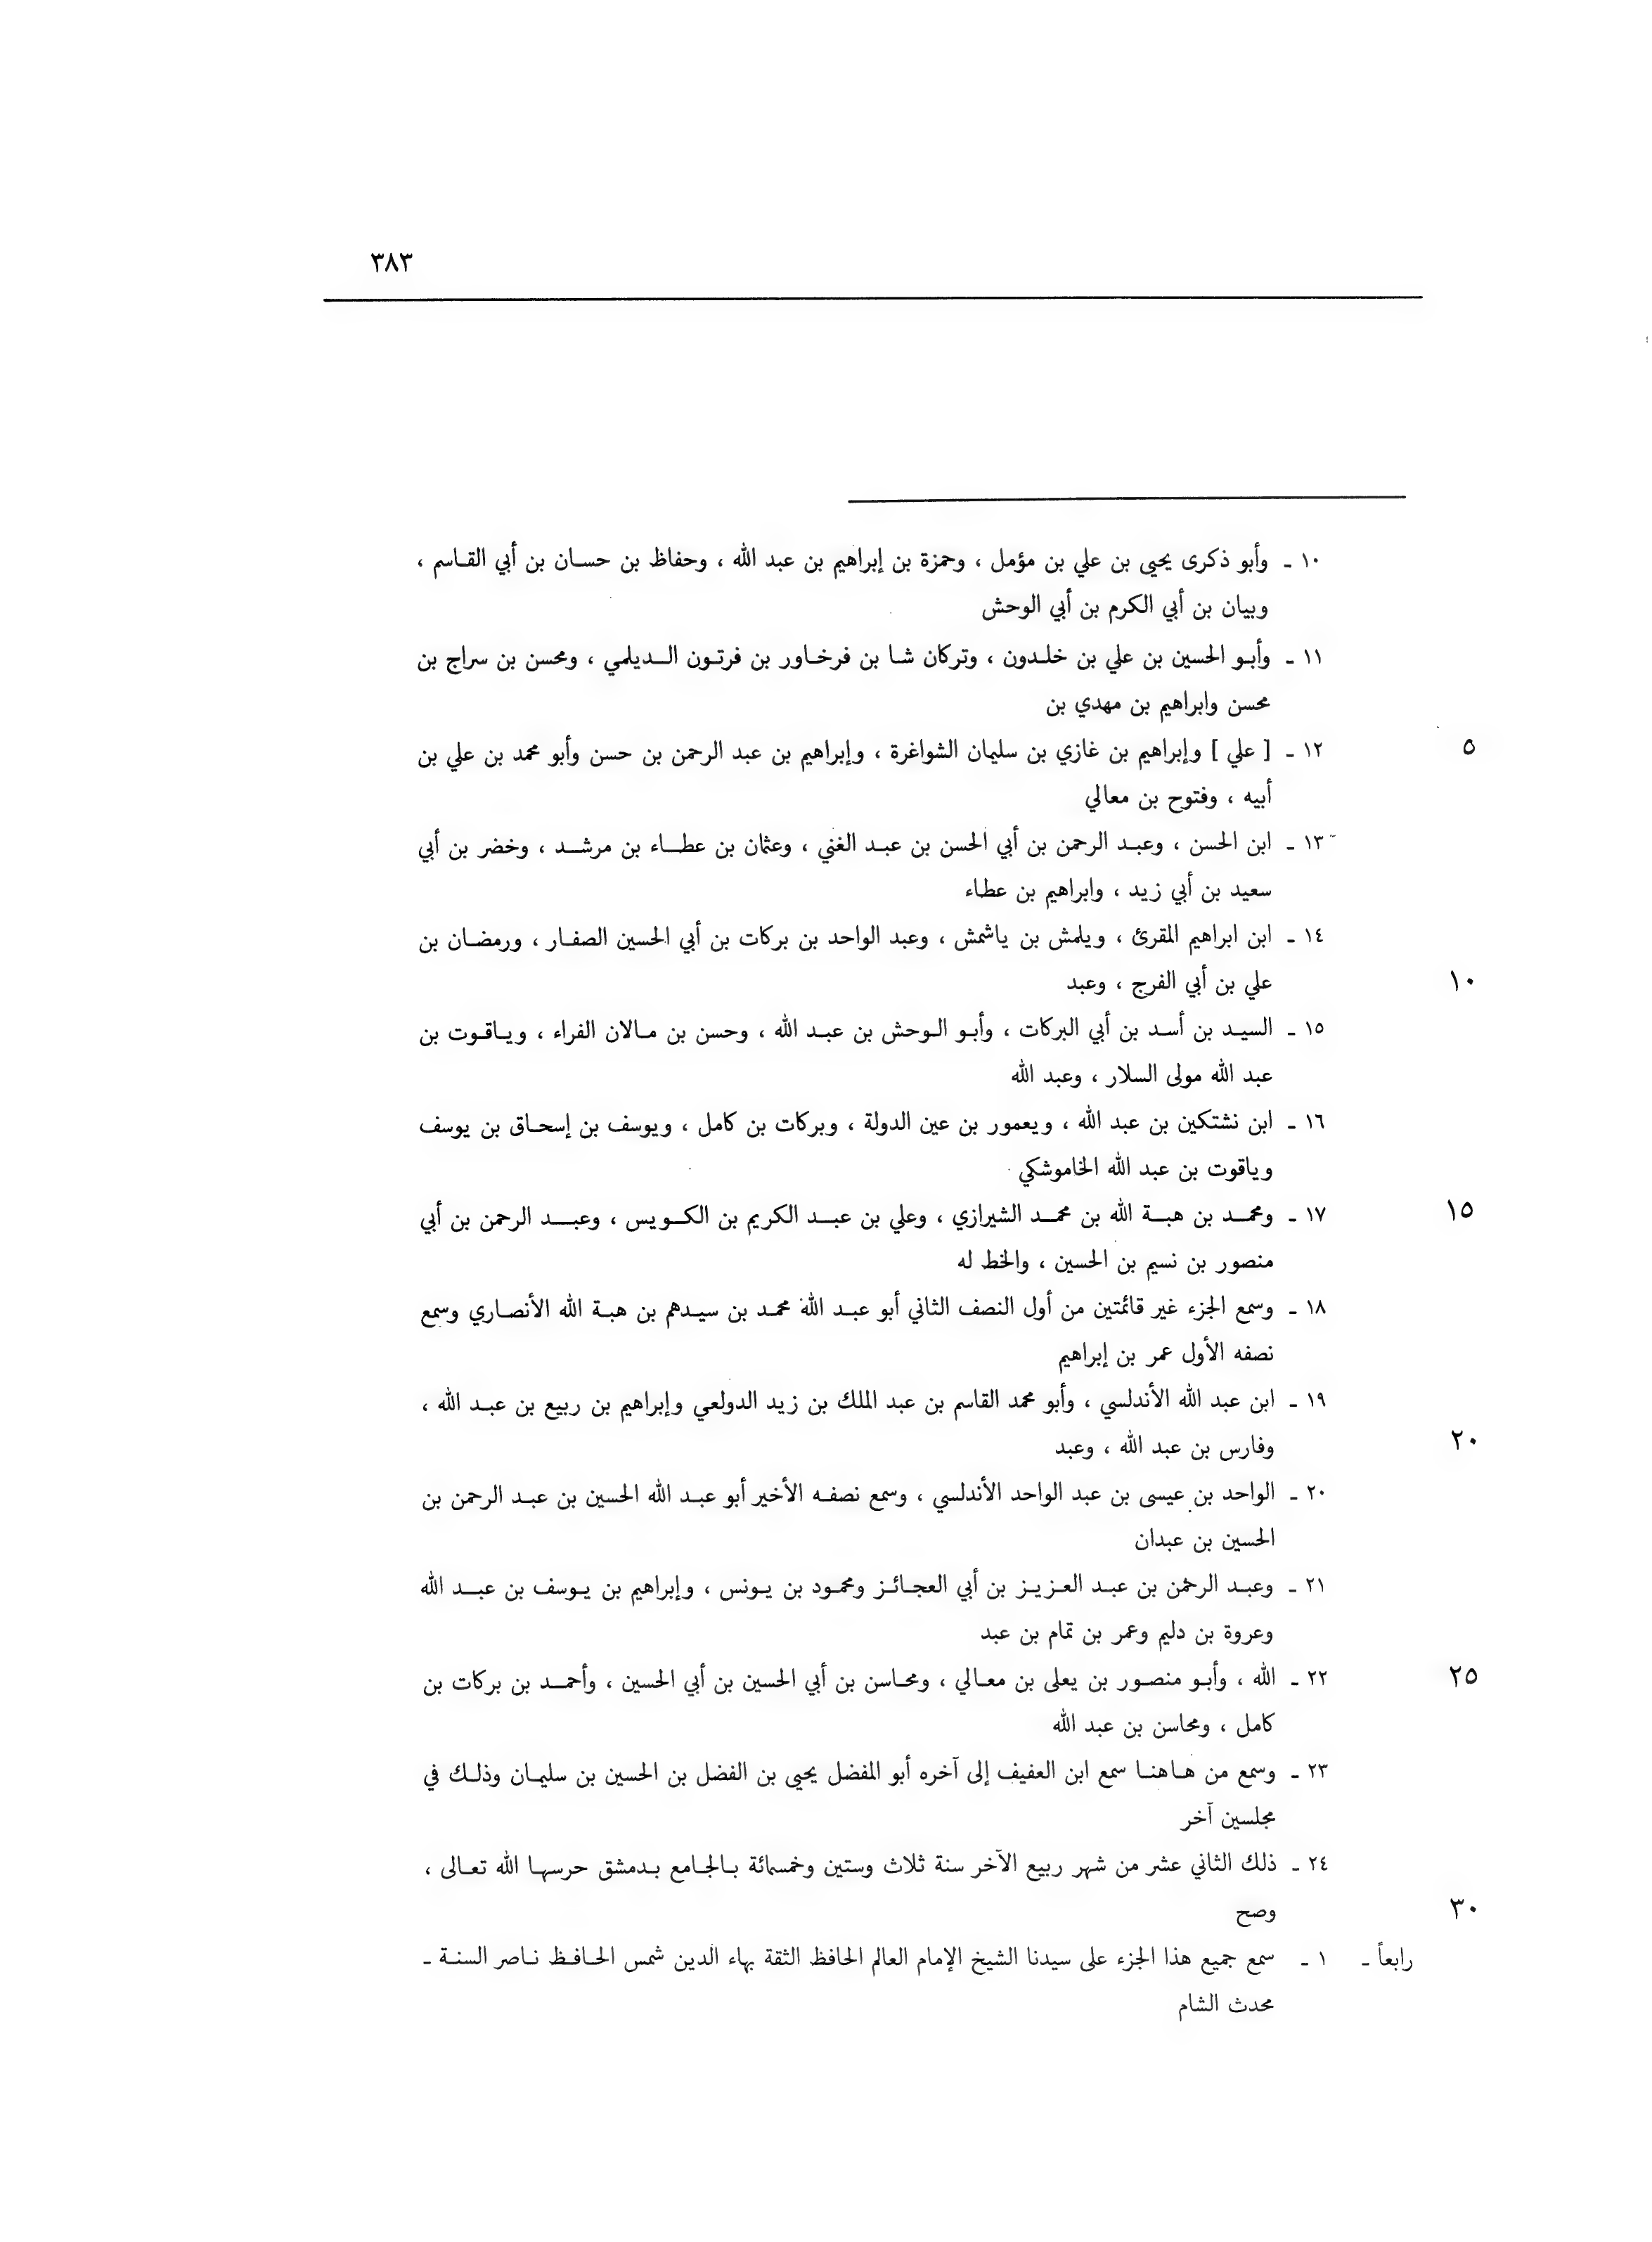 ٣٨٣
١٠ ـ وأبو ذكرى يحيى بن علي بن مؤمل ، وحمزة بن إبراهيم بن عبد الله ، وحفاظ بن حسـان بن أبي القـاسم ،
وبيان بن أبي الكرم بن أبي الوحش
١١ ـ وأبـو الحسين بن علي بن خلـدون ، وتركان شـا بن فرخـاور بن فرتـون الـديلمي ، ومحسن بن سراج بن
محسن وابراهيم بن مهدي بن
٥ ١٢ ـ [ علي ] وإبراهيم بن غازي بن سليمان الشواغرة ، وإبراهيم بن عبد الرحمن بن حسن وأبو محمد بن علي بن
أبيه ، وفتوح بن معالي
١٣ ـ ابن الحسن ، وعبـد الرحمن بن أبي الحسن بن عبـد الغني ، وعثمان بن عطـاء بن مرشـد ، وخضر بن أبي
سعيد بن أبي زيد ، وابراهيم بن عطاء
١٤ ـ ابن ابراهيم المقرئ ، ويلمش بن ياشمش ، وعبد الواحد بن بركات بن أبي الحسين الصفـار ، ورمضـان بن
١٠ علي بن أبي الفرج ، وعبد
١٥ ـ السيـد بن أسـد بن أبي البركات ، وأبـو الـوحش بن عبـد الله ، وحسن بن مـالان الفراء ، ويـاقـوت بن
عبد الله مولى السلار ، وعبد الله
١٦ ـ ابن نشتكين بن عبد الله ، ويعمور بن عين الدولة ، وبركات بن كامل ، ويوسف بن إسحـاق بن يوسف
وياقوت بن عبد الله الخاموشكي
١٥ ١٧ ـ ومحمـد بن هبـة الله بن محمـد الشيرازي ، وعلي بن عبـد الكريم بن الكـويس ، وعبـد الرحمن بن أبي
منصور بن نسيم بن الحسين ، والخط له
١٨ ـ وسمع الجزء غير قائمتين من أول النصف الثاني أبو عبـد الله محمـد بن سيـدهم بن هبـة الله الأنصـاري وسمع
نصفه الأول عمر بن إبراهيم
١٩ ـ ابن عبد الله الأندلسي ، وأبو محمد القاسم بن عبد الملك بن زيد الدولعي وإبراهيم بن ربيع بن عبـد الله ،
٢٠ وفارس بن عبد الله ، وعبد
٢٠ ـ الواحد بن عيسى بن عبد الواحد الأندلسي ، وسمع نصفـه الأخير أبو عبـد الله الحسين بن عبـد الرحمن بن
الحسين بن عبدان
٢١ ـ وعبـد الرحمن بن عبـد العـزيـز بن أبي العجـائـز ومحمـود بن يـونس ، وإبراهيم بن يـوسف بن عبـد الله
وعروة بن دليم وعمر بن تمام بن عبد
٢٥ ٢٢ ـ الله ، وأبـو منصـور بن يعلى بن معـالي ، ومحـاسن بن أبي الحسين بن أبي الحسين ، وأحمـد بن بركات بن
كامل ، ومحاسن بن عبد الله
٢٣ ـ وسمع من هـاهنـا سمع ابن العفيف إلى آخره أبو المفضل يحيى بن الفضل بن الحسين بن سليمـان وذلـك في
مجلسين آخر
٢٤ ـ ذلك الثاني عشر من شهر ربيع الآخر سنة ثلاث وستين وخمسمائة بـالجـامع بـدمشق حرسهـا الله تعـالى ،
٣٠ وصح
رابعاً ـ ١ ـ سمع جميع هذا الجزء على سيدنا الشيخ الإمام العالم الحافظ الثقة بهاء الدين شمس الحـافـظ نـاصر السنـة ـ
محدث الشام